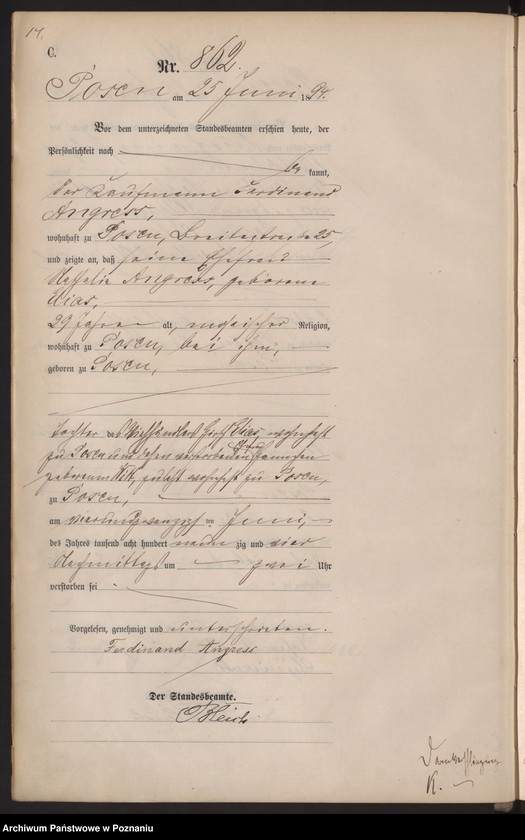 17.
C.
Nr. 862.
Posen am 25 Juni 1894.
Vor dem unterzeichneten Standesbeamten erschien heute, der
Persönlichkeit nach
be kannt,
der Kaufmann Ferdinand
Angress,
wohnhaft zu Posen, Breitestraße 25,
und zeigte an, daß seine Ehefrau
Nathalie Angress, geborene
Elias,
29 Jahre alt, mosaischer Religion,
wohnhaft zu Posen, bei ihm,
geboren zu Posen,
Tochter des Viehhändlers Hirsch Elias, wohnhaft
zu Posen und dessen verstorbenen Ehefrau
geborenen zuletzt wohnhaft zu Posen,
zu Posen,
am vierundzwanzigsten Juni,
des Jahres tausend acht hundert neun zig und vier
Nachmittags um zwei Uhr
verstorben sei
Vorgelesen, genehmigt und unterschrieben.
Ferdinand Angress
Der Standesbeamte.
K.
Archiwum Państwowe w Poznaniu